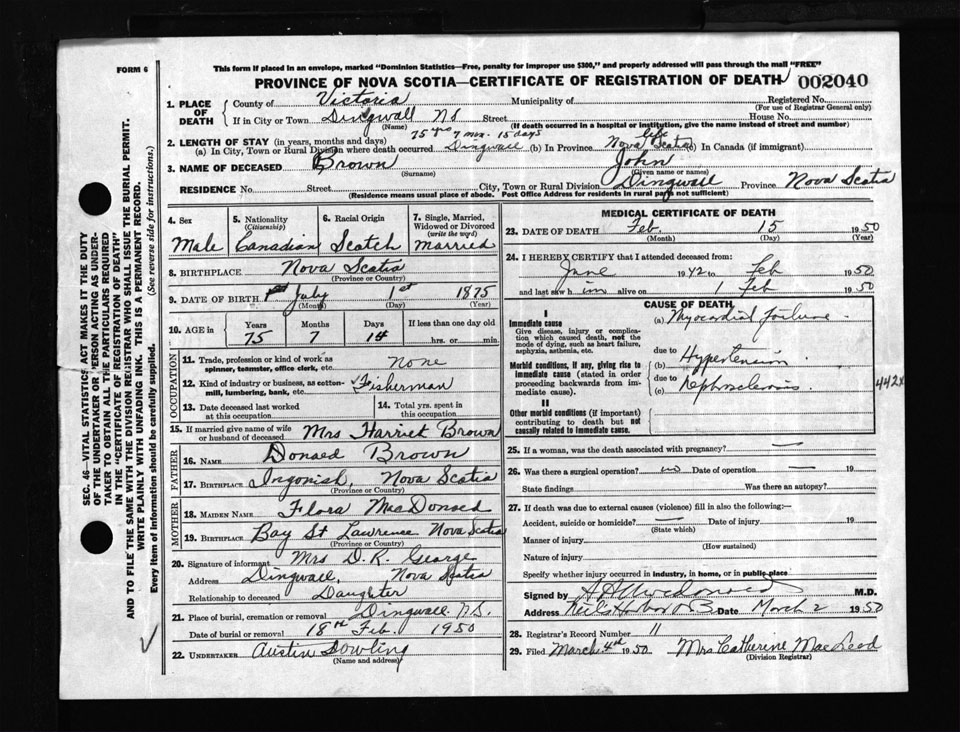 FORM 6
This form if placed in an envelope, marked "Dominion Statistics—Free, penalty for improper use $300," and properly addressed will pass through the mail "FREE"
PROVINCE OF NOVA SCOTIA—CERTIFICATE OF REGISTRATION OF DEATH
002040
1. PLACE OF DEATH
County of Victoria Municipality of Registered No.
(For use of Registrar General only)
If in City or Town Dingwall NS Street House No.
(Name) (If death occurred in a hospital or institution, give the name instead of street and number)
75 yrs 7 mon. 15 days life
2. LENGTH OF STAY (in years, months and days)
(a) In City, Town or Rural Division where death occurred Dingwall (b) In Province Nova Scotia (c) In Canada (if immigrant)
3. NAME OF DECEASED Brown John
(Surname) (Given name or names)
RESIDENCE No. Street City, Town or Rural Division Dingwall Province Nova Scotia
(Residence means usual place of abode. Post Office Address for Residents in rural parts not sufficient)
4. Sex
Male
5. Nationality
(Citizenship)
Canadian
6. Racial Origin
Scotch
7. Single, Married, Widowed or Divorced
(write the word)
Married
8. BIRTHPLACE Nova Scotia
(Province or Country)
9. DATE OF BIRTH July 1st 1875
(Month) (Day) (Year)
10. AGE in
Years Months Days If less than one day old
75 7 14 hrs. or min.
OCCUPATION
11. Trade, profession or kind of work as spinner, teamster, office clerk, etc. None
12. Kind of industry or business, as cotton-mill, lumbering, bank, etc. Fisherman
13. Date deceased last worked at this occupation
14. Total yrs. spent in this occupation
15. If married give name of wife or husband of deceased Mrs Harriet Brown
FATHER
16. NAME Donald Brown
17. BIRTHPLACE Ingonish, Nova Scotia
(Province or Country)
MOTHER
18. MAIDEN NAME Flora MacDonald
19. BIRTHPLACE Bay St Lawrence Nova Scotia
(Province or Country)
20. Signature of informant Mrs D. R. George
Address Dingwall, Nova Scotia
Relationship to deceased Daughter
21. Place of burial, cremation or removal Dingwall N.S.
Date of burial or removal 18th Feb. 1950
22. UNDERTAKER Austin Dowling
(Name and address)
MEDICAL CERTIFICATE OF DEATH
23. DATE OF DEATH Feb. 15 1950
(Month) (Day) (Year)
24. I HEREBY CERTIFY that I attended deceased from:
June 1942 to Feb 1950
and last saw h im alive on 1 Feb 1950
CAUSE OF DEATH
I
Immediate cause
Give disease, injury or complication which caused death, not the mode of dying, such as heart failure, asphyxia, asthenia, etc.
(a) Myocardial failure
due to
Morbid conditions, if any, giving rise to immediate cause (stated in order proceeding backwards from immediate cause).
Hypertension
due to
(c) Nephrosclerosis
442X
II
Other morbid conditions (if important) contributing to death but not causally related to immediate cause.
25. If a woman, was the death associated with pregnancy? —
26. Was there a surgical operation? no Date of operation — 19
State findings Was there an autopsy?
27. If death was due to external causes (violence) fill in also the following:—
Accident, suicide or homicide? Date of injury 19
(State which)
Manner of injury
(How sustained)
Nature of injury
Specify whether injury occurred in industry, in home, or in public place
Signed by M.D.
Address Date March 2 1950
28. Registrar's Record Number 11
29. Filed March 4th 1950 Mrs Catherine MacLeod
(Division Registrar)
SEC. 46—VITAL STATISTICS ACT MAKES IT THE DUTY
OF THE UNDERTAKER OR PERSON ACTING AS UNDER-
TAKER TO OBTAIN ALL THE PARTICULARS REQUIRED
IN THE "CERTIFICATE OF REGISTRATION OF DEATH"
AND TO FILE THE SAME WITH THE DIVISION REGISTRAR WHO SHALL ISSUE THE BURIAL PERMIT.
WRITE PLAINLY WITH UNFADING INK. THIS IS A PERMANENT RECORD.
Every item of information should be carefully supplied. (See reverse side for instructions.)